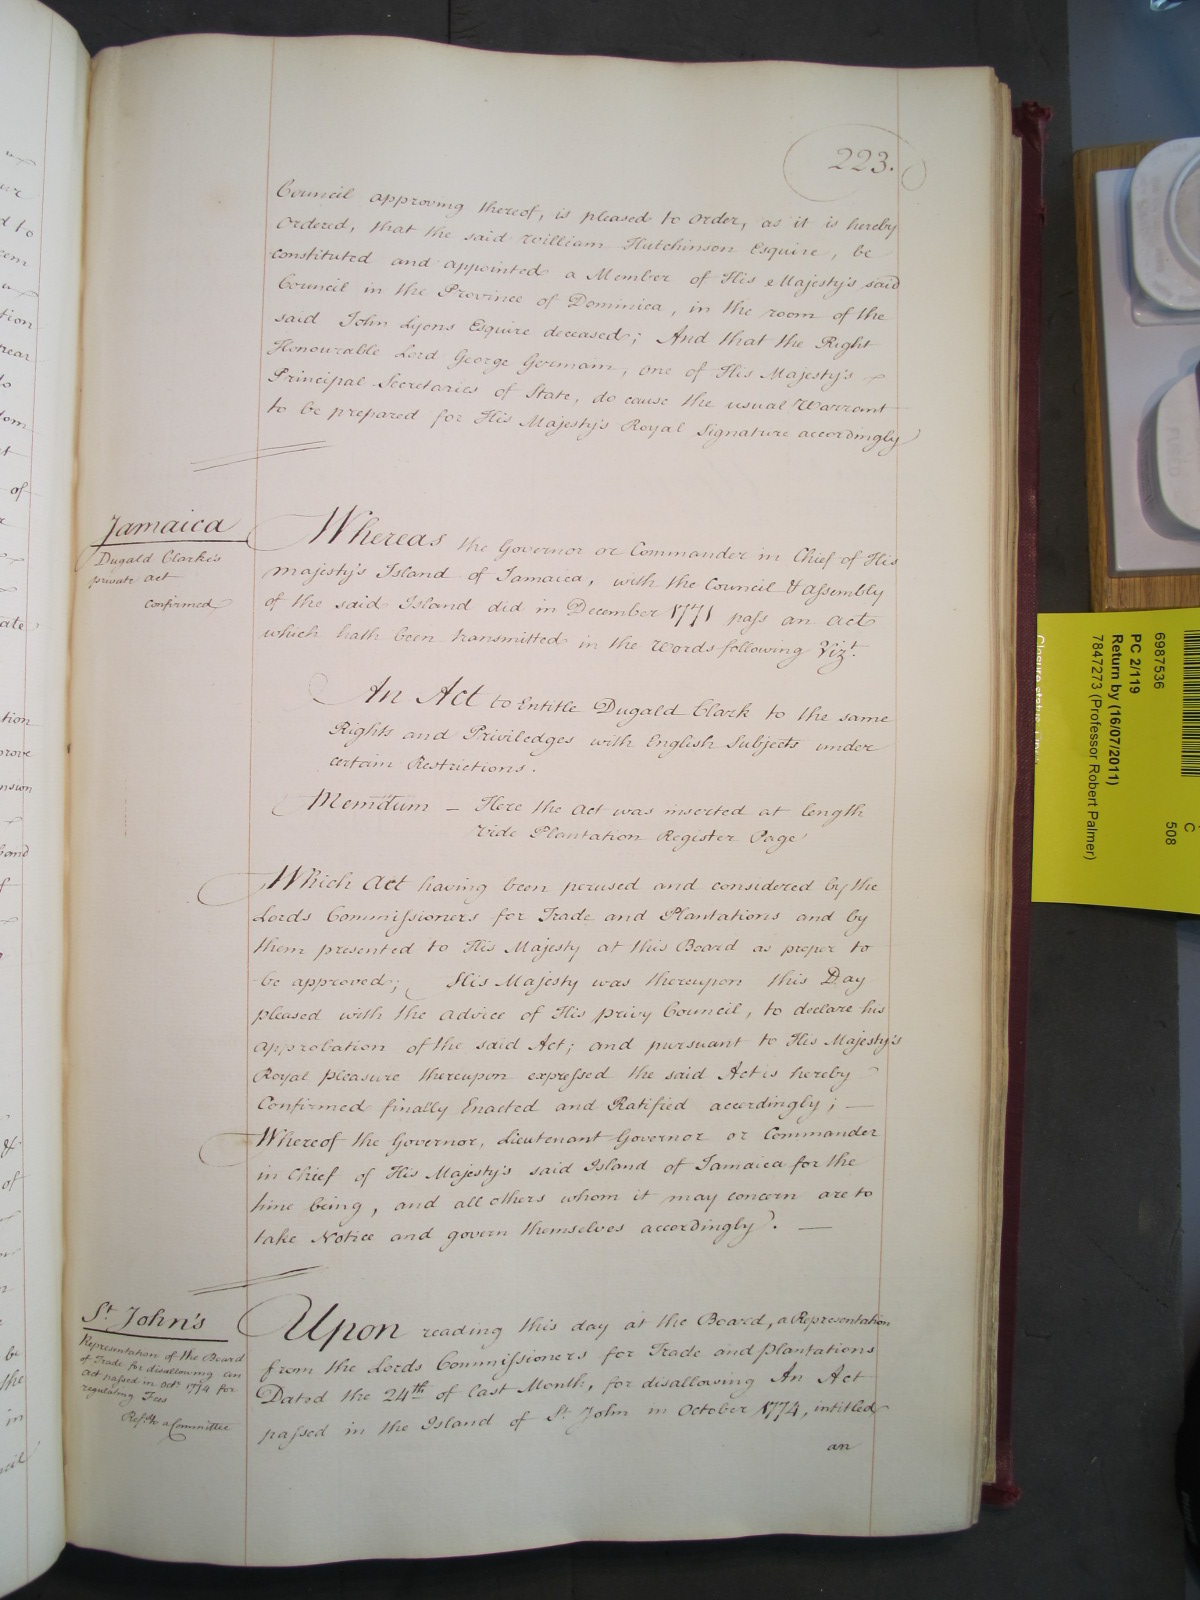 223.
Council approving thereof, is pleased to order, as it is hereby
Ordered, that the said William Hutchinson Esquire, be
constituted and appointed a Member of His Majesty's said
Council in the Province of Dominica, in the room of the
said John Lyons Esquire deceased; And that the Right
Honourable Lord George Germain, one of His Majesty's
Principal Secretaries of State, do cause the usual Warrant
to be prepared for His Majesty's Royal Signature accordingly
Jamaica
Dugald Clarke's
private act
confirmed
Whereas the Governor or Commander in Chief of His
majesty's Island of Jamaica, with the Council & assembly
of the said Island did in December 1771 pass an act
which hath been transmitted in the Words following Vizt.
An Act to Entitle Dugald Clark to the same
Rights and Priviledges with English Subjects under
certain Restrictions.
Memdum – Here the Act was inserted at length
vide Plantation Register Page
Which Act having been perused and considered by the
Lords Commissioners for Trade and Plantations and by
them presented to His Majesty at this Board as proper to
be approved; His Majesty was thereupon this Day
pleased with the advice of His privy Council, to declare his
approbation of the said Act; and pursuant to His Majesty's
Royal pleasure thereupon expressed the said Act is hereby
Confirmed finally Enacted and Ratified accordingly; —
Whereof the Governor, Lieutenant Governor or Commander
in Chief of His Majesty's said Island of Jamaica for the
time being, and all others whom it may concern are to
take Notice and govern themselves accordingly. —
St. John's
Representation of the Board
of Trade for disallowing an
act passed in Octr. 1774 for
regulating Fees
Ref. to a Committee
Upon reading this day at the Board, a Representation
from the Lords Commissioners for Trade and plantations
Dated the 24th of last Month, for disallowing An Act
passed in the Island of St. John in October 1774, intitled
an
6987536
C
508
PC 2/119
Return by (16/07/2011)
7847273 (Professor Robert Palmer)